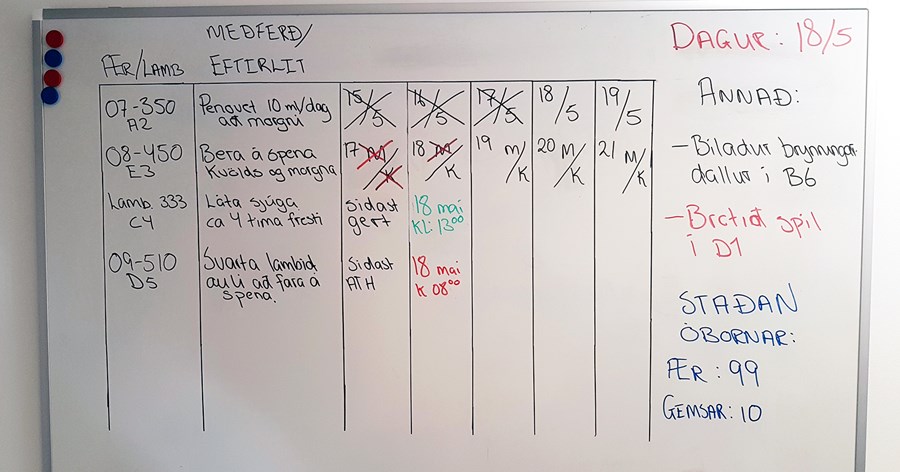 MEÐFERÐ/
ÆR/LAMB EFTIRLIT
07-350 Penovet 10 ml/dag 15/5 16/5 17/5 18/5 19/5
A2 að morgni
08-450 Bera á spena 17 M/K 18 M/K 19 M/K 20 M/K 21 M/K
E3 Kvölds og morgna
Lamb 333 Láta sjúga síðast 18 maí
C4 ca 4 tíma fresti gert KL: 13⁰⁰
09-510 Svarta lambið síðast 18 maí
D5 auli að fara á ATH K 08⁰⁰
spena.
DAGUR: 18/5
ANNAÐ:
- Bilaður brynningar-
dallur í B6
- Brotið spil
í D1
STAÐAN
ÓBORNAR:
ÆR: 99
GEMSAR: 10